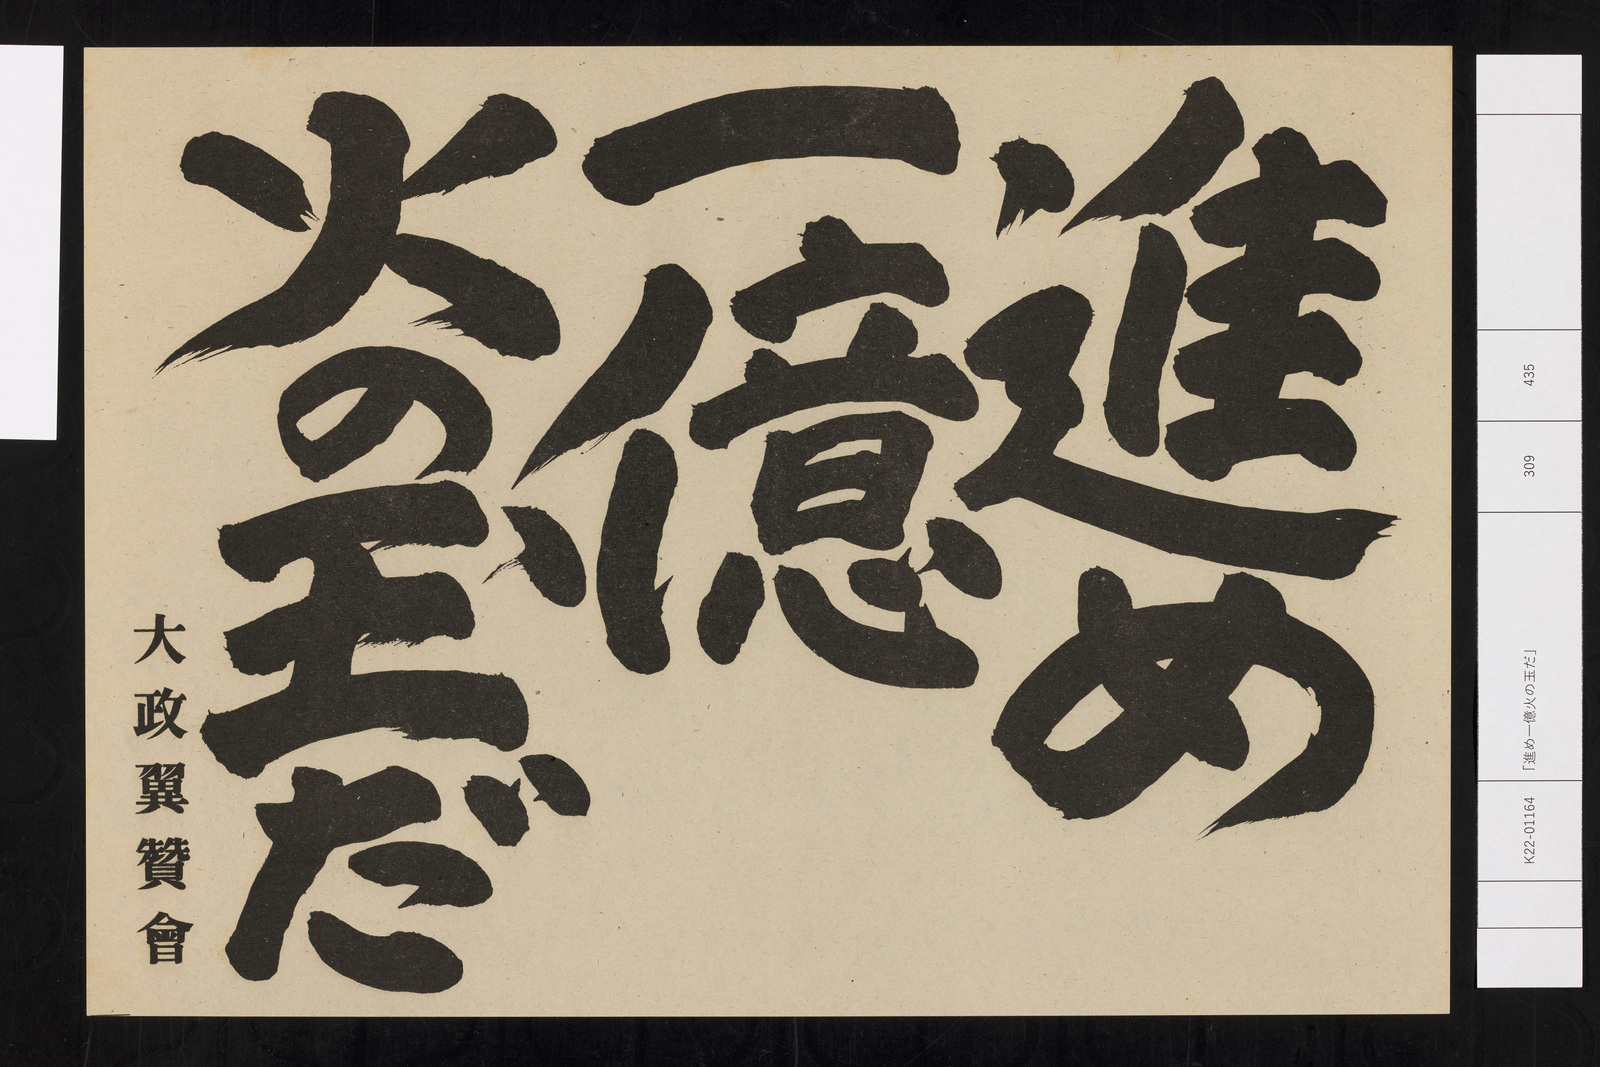 進め
一億
火の玉だ
大政翼賛會
435
309
「進め一億火の玉だ」
K22-01164